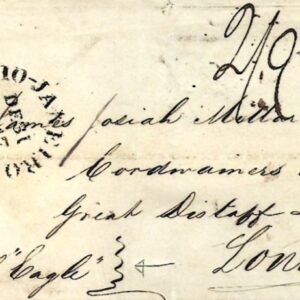 2/9
IO-JANEIRO
DE
James Josiah Millar
Cordwainers
Great Distaff
Lon
"Eagle"